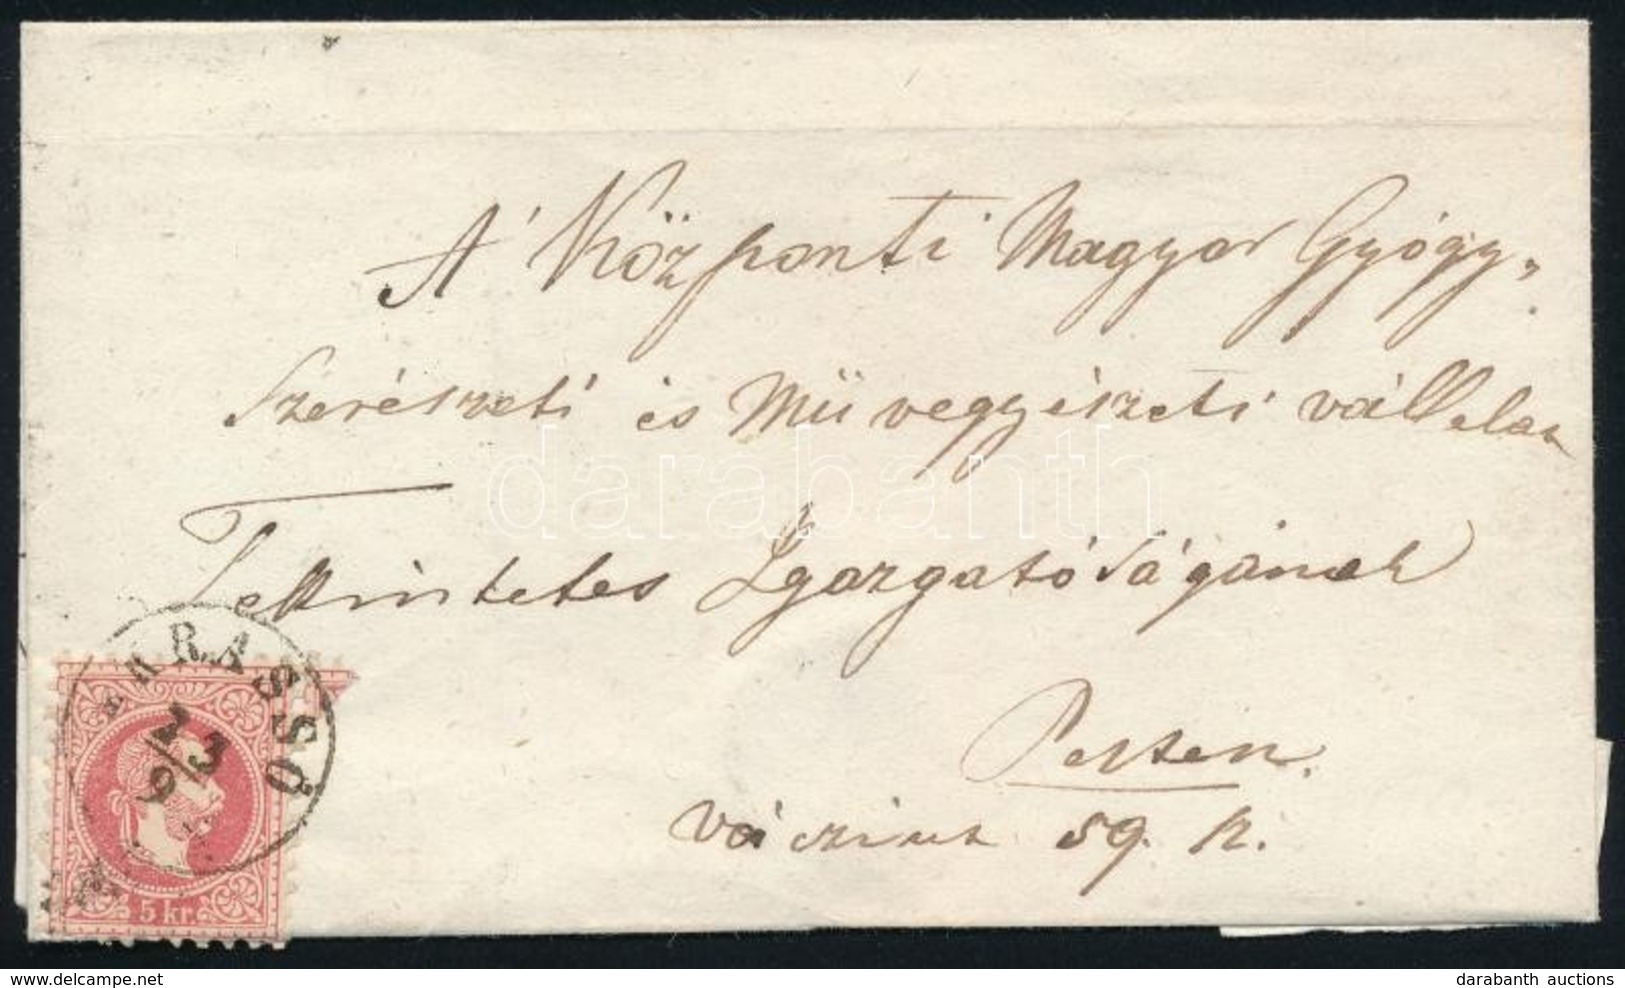 A' Központi Magyar Gyógy„
szerészeti és Müvegyészeti vállalat
Tekintetes Igazgatóságának
Pesten.
váczi ut 59. sz.
KARASSÓ
2/9 3
5 kr.
darabanth
delcampe.net
darabanth auctions